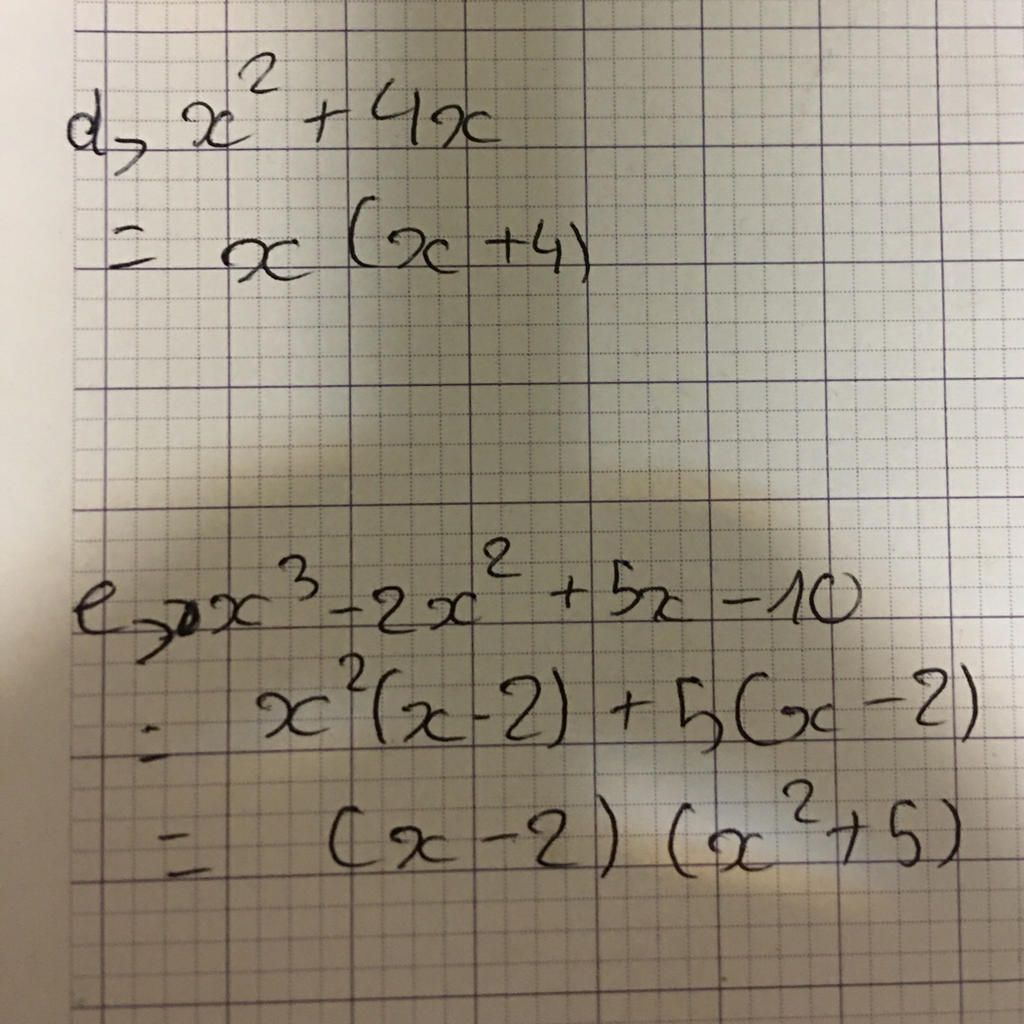 d, x² + 4x
= x (x +4)
e, x³ - 2x² + 5x - 10
= x²(x-2) + 5(x-2)
= (x-2) (x²+5)